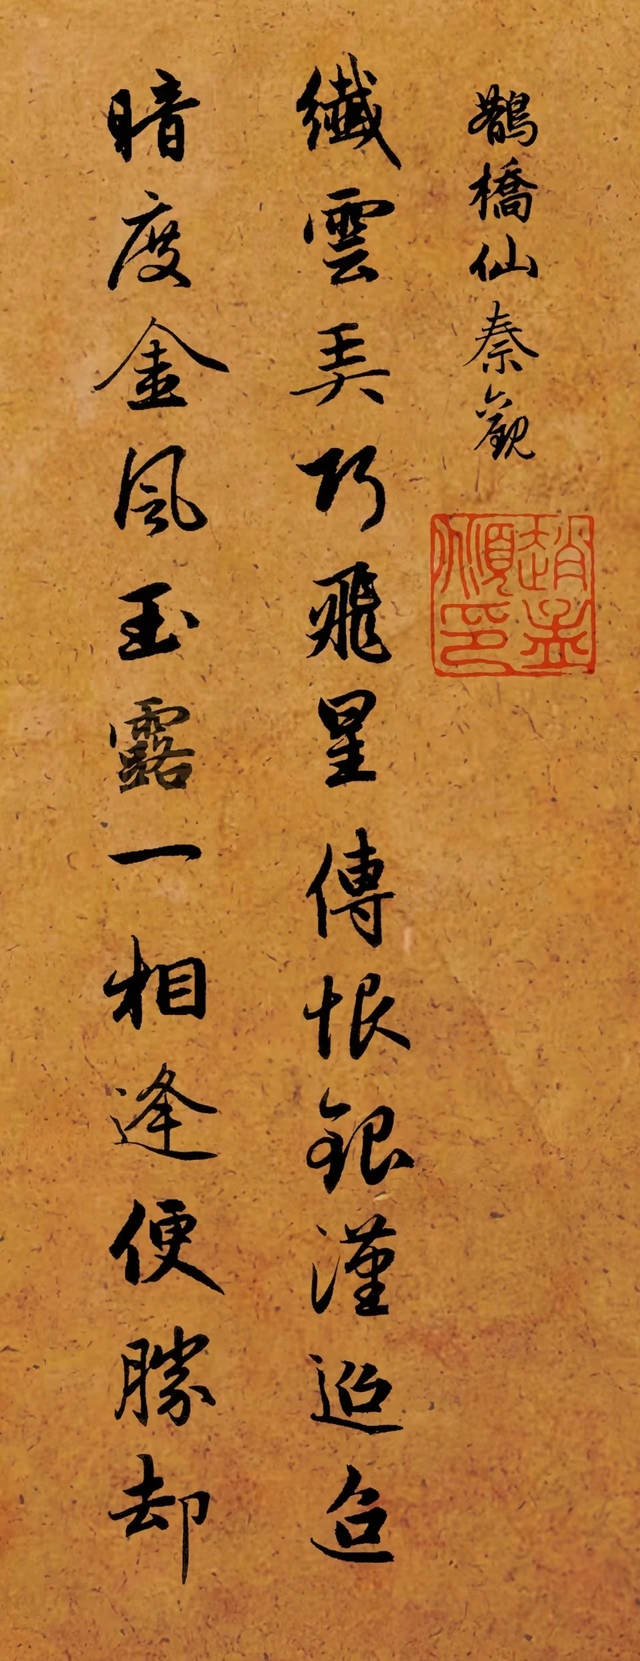 鵲橋仙秦觀
趙孟頫印
纖雲弄巧飛星傳恨銀漢迢迢
暗度金風玉露一相逢便勝却